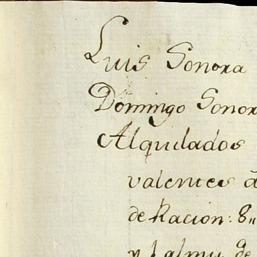 Luis Sonora
Domingo Sonor
Alquilados
valentes á
de Racion: 8
y 1 almu de